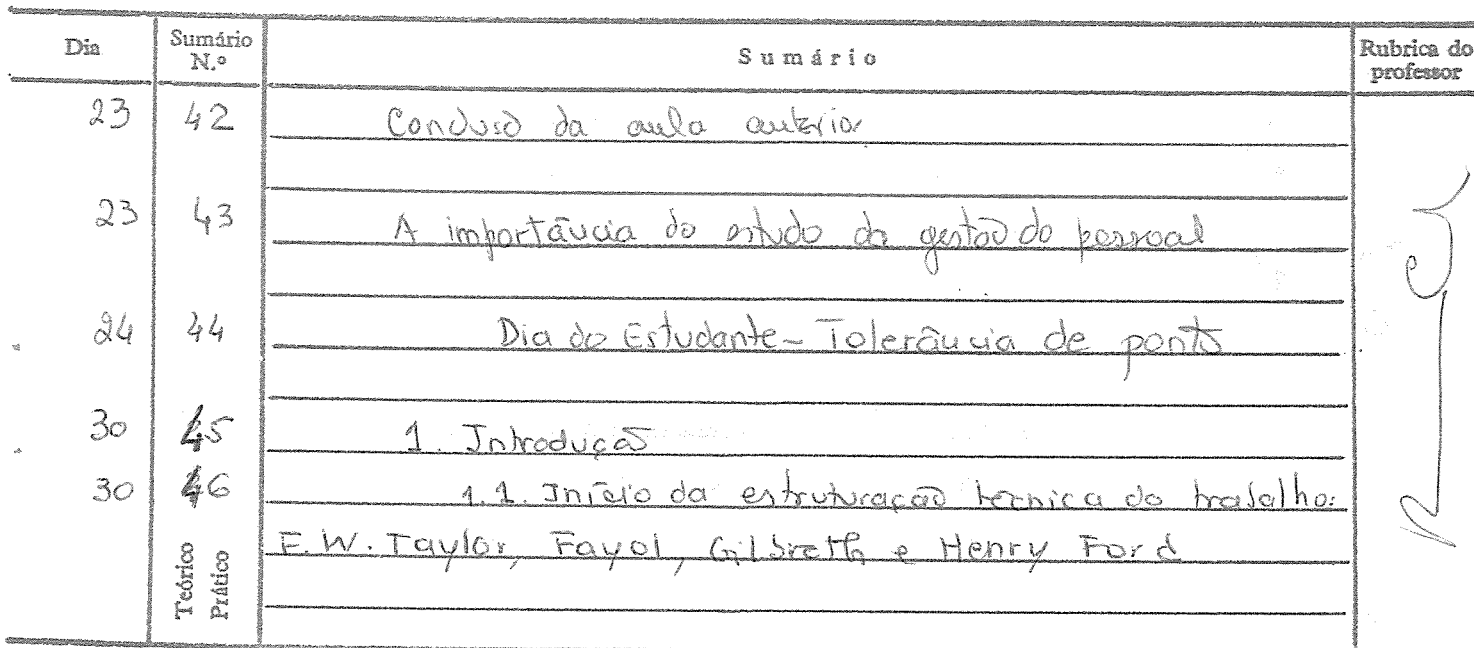 Dia Sumário N.º Sumário Rubrica do professor
23 42 Conclusão da aula anterior
23 43 A importância do estudo da gestão do pessoal
24 44 Dia do Estudante - Tolerância de ponto
30 45 1. Introdução
30 46 1.1. Início da estruturação técnica do trabalho:
F. W. Taylor, Fayol, Gilbreth e Henry Ford
Teórico
Prático